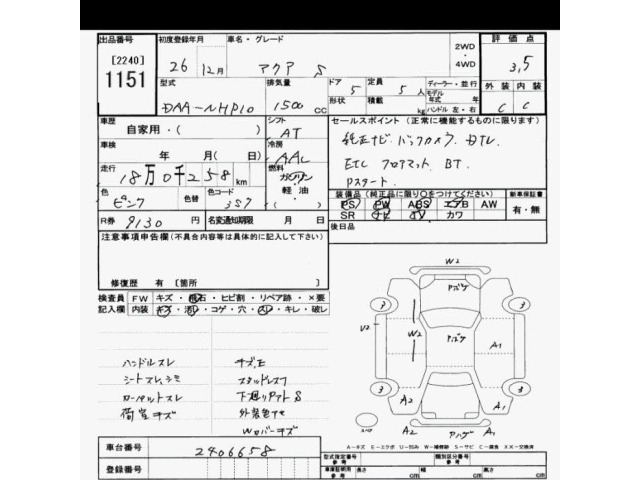 出品番号 初度登録年月 車名・グレード 2WD・4WD 評価点
[2240] 1151 26 12月 アクア S 3,5
型式 排気量 ドア 定員 ディーラー・並行 外装 内装
DAA-NHP10 1500CC 5 5人 モデル年式 年 C C
形状 積載 kg ハンドル 左・右
車歴 シフト セールスポイント(正常に機能するものに限ります)
自家用・( ) AT 純正ナビ バックカメラ
車検 冷房 ETC フロアマット BT.
年 月( 日) AAC Pスタート.
走行 燃料
18万0千258km ガソリン・軽油・
装備品(純正品に限り〇をつけてください) 新車保証書
色 色替 色コード PS PW ABS エアB AW 有・無
ピンク 3S7 SR ナビ TV カワ
R券 9130円 名変通知期限 月 日 後日品
注意事項申告欄(不具合内容等は具体的に記入して下さい)
修復歴 有[箇所 ]
検査員記入欄 FW キズ・飛石・ヒビ割・リペア跡・×要
内装 キズ・汚れ・コゲ・穴・スレ・キレ・破レ
W2
アバゲ
3 3
V2 W2 アバゲ A1
3 3
A2 A1
A2 アバゲ A1
ハンドルスレ キズ,E
シートスレ,シミ スタッドレス7
カーペットスレ 下廻りサビ S
荷室キズ 外装色アセ
Wカバーキズ
A-キズ E-エクボ U-凹み W-補修跡 S-サビ C-腐食 XX-交換済
車台番号 2406658
登録番号
型式指定番号 参考 類別区分番号 参考
車庫証明用 参考 長さ cm 幅 cm 高さ cm